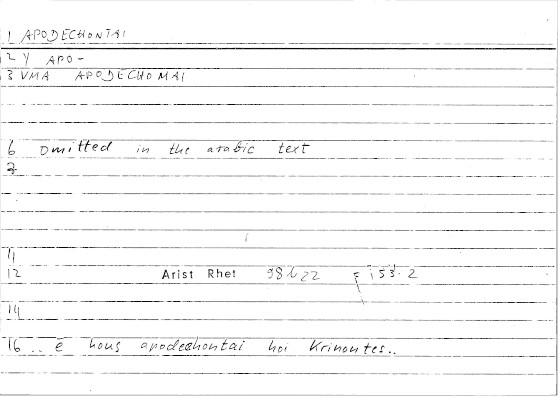 1 APODECHONTAI
2 Y APO-
3 VMA APODECHOMAI
6 Omitted in the arabic text
7
11
12 Arist Rhet 98b22 153.2
14
16 .. ē hous apodechontai hoi Krinontes..